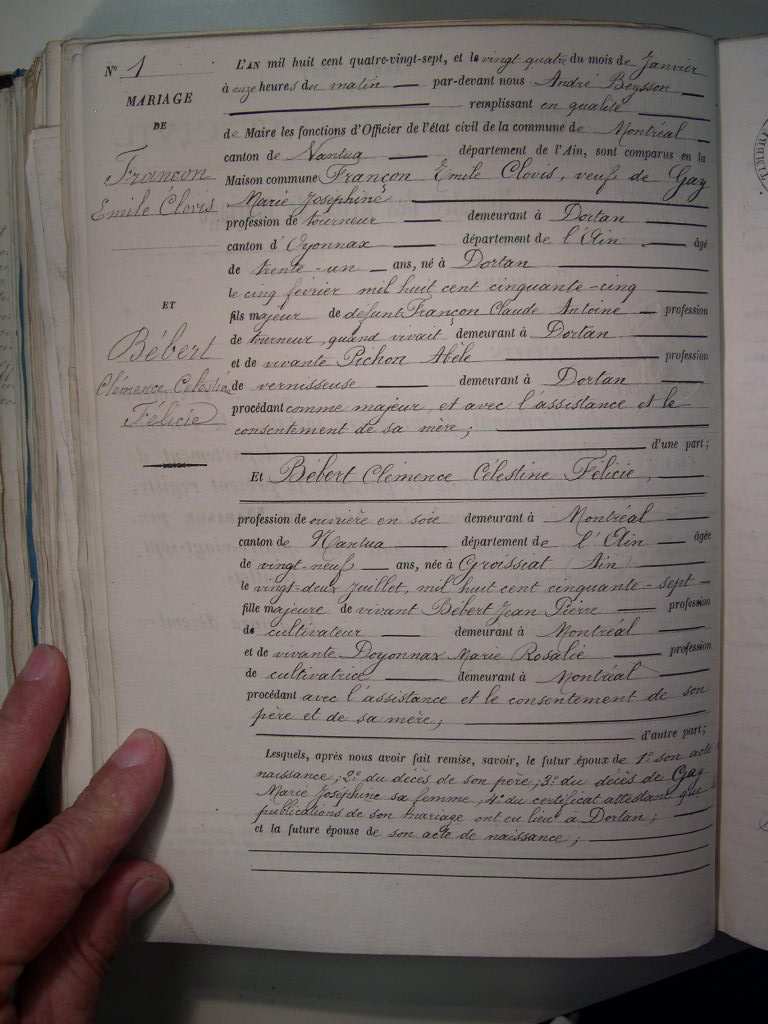 N° 1
MARIAGE
DE
Françon
Emile Clovis
ET
Bébert
Clémence Celestine
Félicie
L'AN mil huit cent quatre-vingt-sept, et le vingt-quatre du mois de Janvier
à onze heures du matin par-devant nous André Beysson
remplissant en qualité
de Maire les fonctions d'Officier de l'état civil de la commune de Montréal
canton de Nantua département de l'Ain, sont comparus en la
Maison commune Françon Emile Clovis, veuf de Gay
Marie Josephine
profession de tourneur demeurant à Dortan
canton d'Oyonnax département de l'Ain âgé
de trente-un ans, né à Dortan
le cinq février mil huit cent cinquante-cinq
fils majeur de défunt Françon Claude Antoine profession
de tourneur, quand vivait demeurant à Dortan
et de vivante Pichon Abèle profession
de vernisseuse demeurant à Dortan
procédant comme majeur, et avec l'assistance et le
consentement de sa mère;
d'une part;
Et Bébert Clémence Célestine Félicie,
profession de ouvrière en soie demeurant à Montréal
canton de Nantua département de l'Ain âgée
de vingt-neuf ans, née à Groissiat (Ain)
le vingt-deux Juillet, mil huit cent cinquante-sept
fille majeure de vivant Bébert Jean Pierre profession
de cultivateur demeurant à Montréal
et de vivante Doyonnax Marie Rosalie profession
de cultivatrice demeurant à Montréal
procédant avec l'assistance et le consentement de son
père et de sa mère;
d'autre part;
Lesquels, après nous avoir fait remise, savoir, le futur époux de 1° son acte
naissance; 2° du décès de son père; 3° du décès de Gay
Marie Josephine sa femme, 4° du certificat attestant que
publications de son mariage ont eu lieu à Dortan;
et la future épouse de son acte de naissance;
TIMBRE